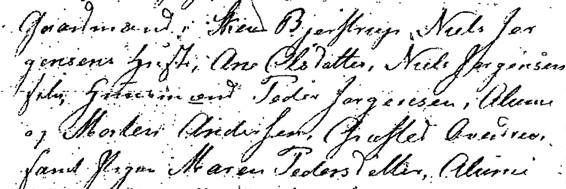 Gaardmand i Skee Bjerstrup, Niels Jør
gensens Hust, Ane Olsdatter, Niels Jørgensen
selv, Huusmand Peder Jørgensen, Alum
og Morten Andersen,
samt Pigen Maren Pedersdatter, Alum